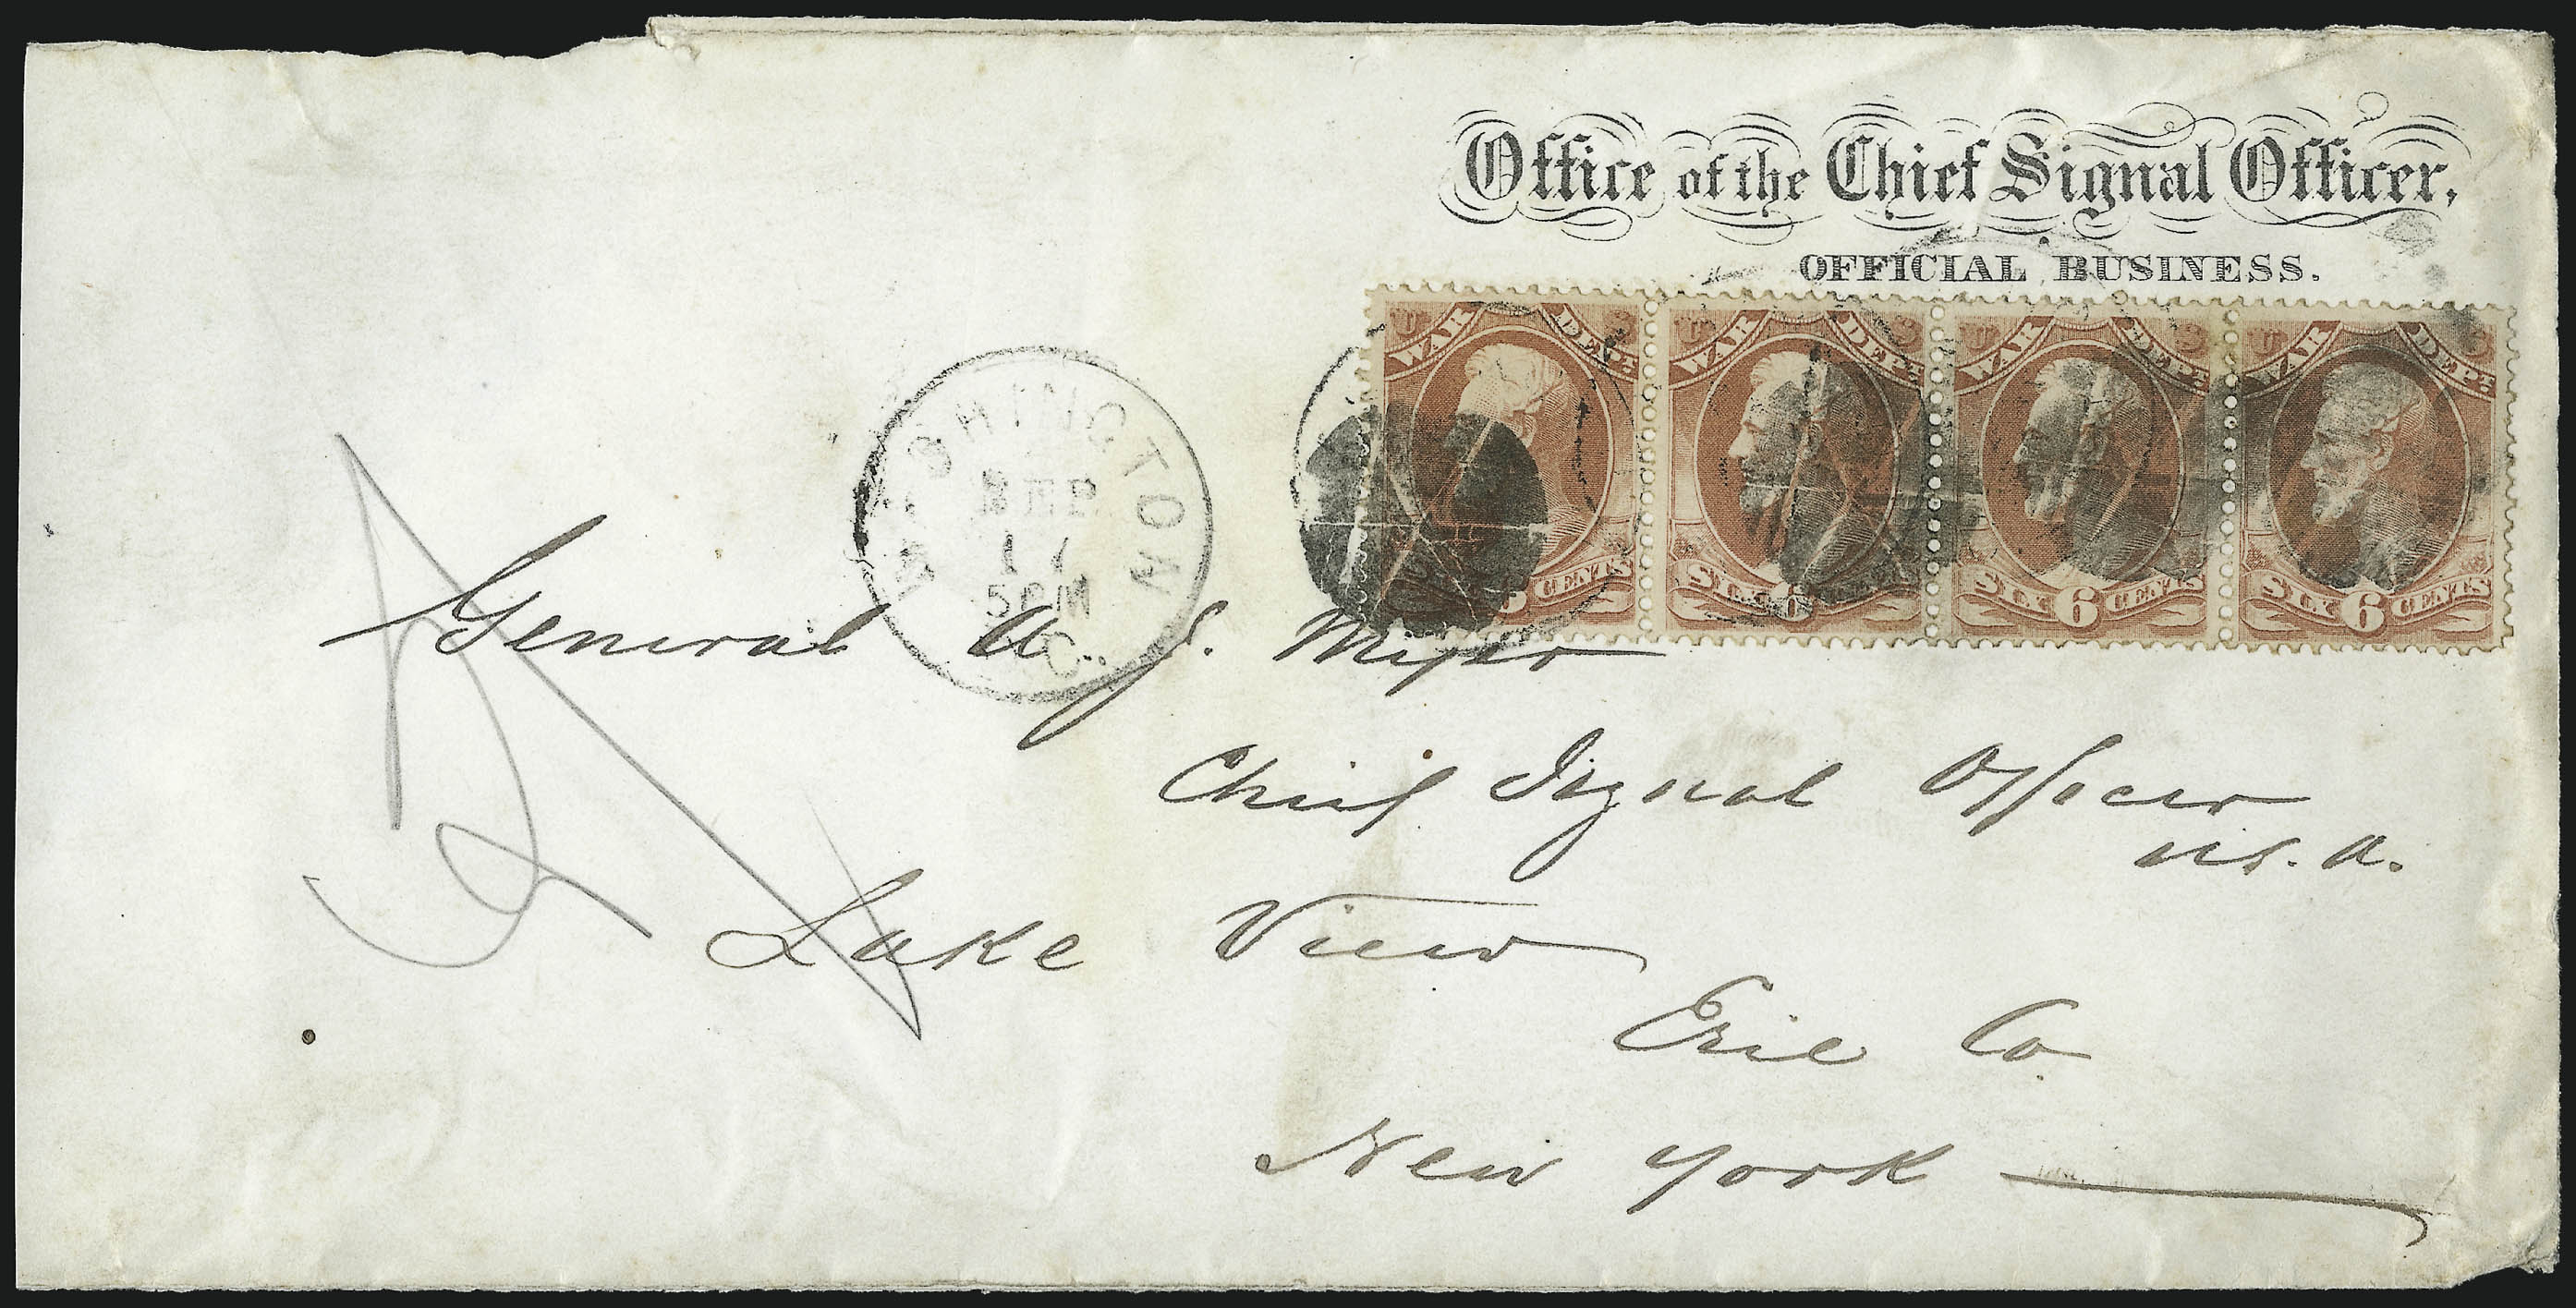 Office of the Chief Signal Officer,
OFFICIAL BUSINESS.
U S WAR DEPT. CENTS
U S WAR DEPT. SIX 6 CENTS
U S WAR DEPT. SIX 6 CENTS
U S WAR DEPT. SIX 6 CENTS
WASHINGTON
SEP
17
5PM
D.C.
General A. J. Myer
Chief Signal Officer
U.S.A.
Lake View
Erie Co
New York